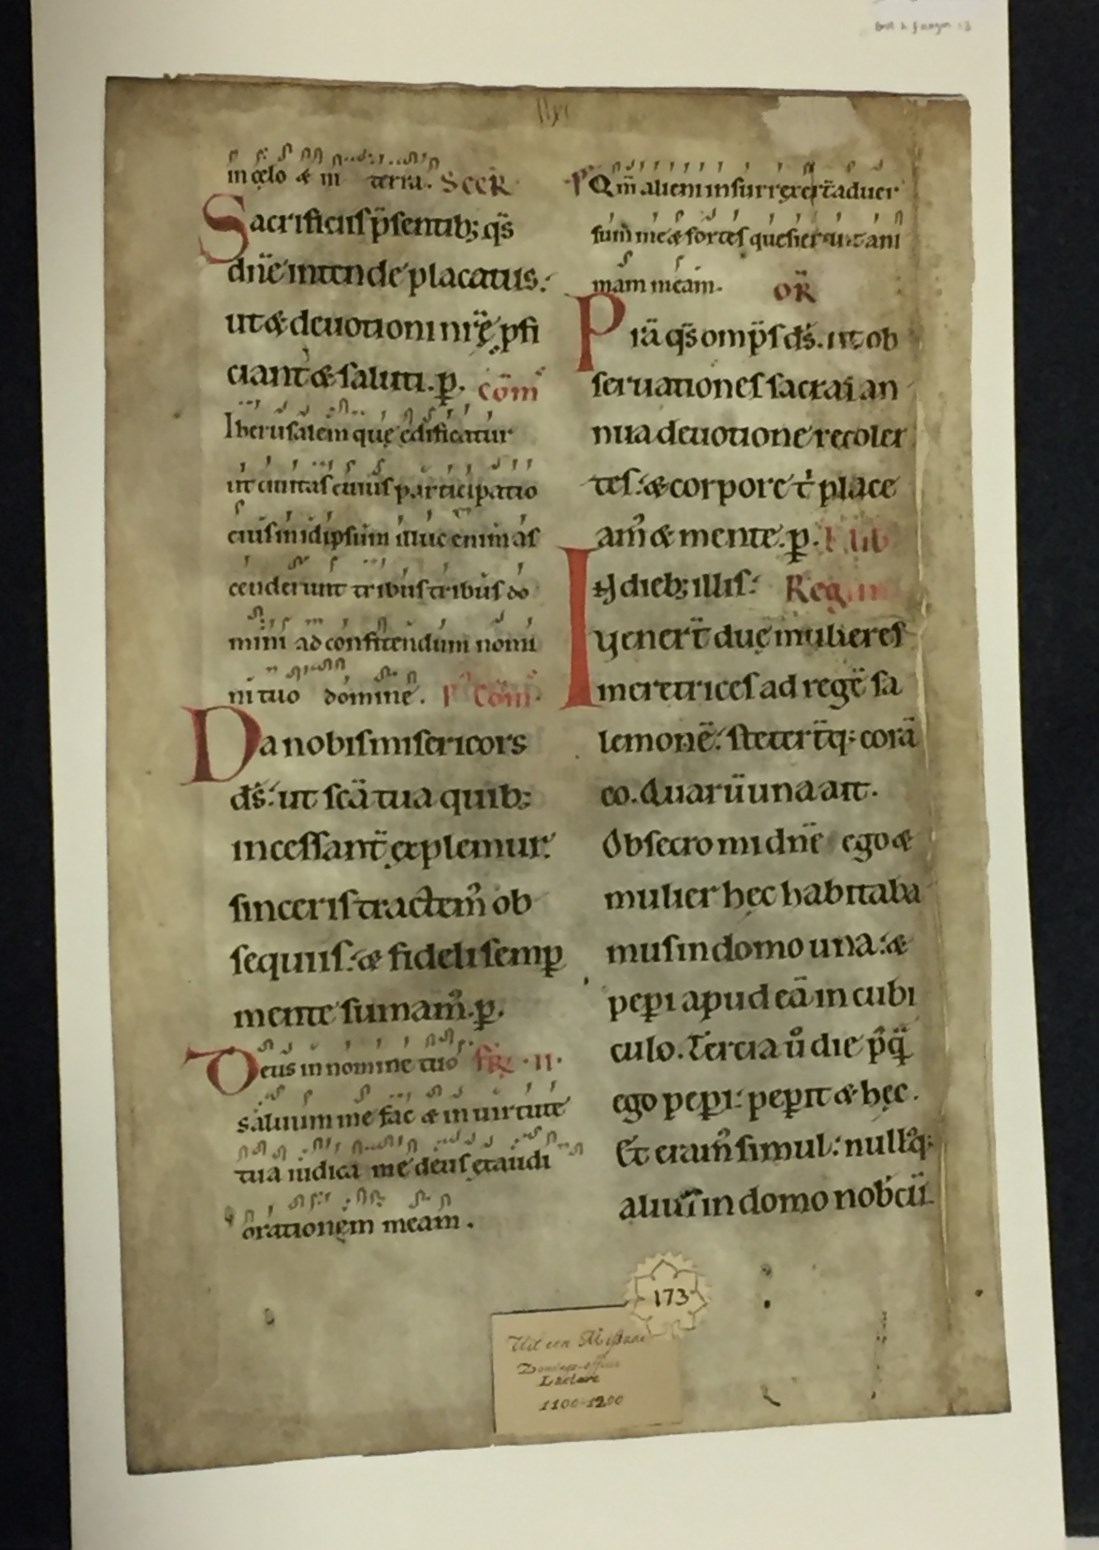 in cęlo & in terra. SecR
Sacrificiis p̄sentib; qs̄
dn̄e intende placatus.
ut & deuotioni nr̄ę ꝓfi
ciant & saluti. p. cōm
Iherusalem que edificatur
ut ciuitas cuius participatio
eius in idipsum illuc enim as
cenderunt tribus tribus do
mini ad confitendum nomi
ni tuo domine. P Com̄.
Da nobis misericors
ds̄. ut scā tua quib;
incessant̄ explemur.
sinceris tractem᷒ ob
sequiis. & fideli semꝑ
mente sumam᷒. p.
Deus in nomine tuo FR̄. II.
saluum me fac & in uirtute
tua iudica me deus exaudi
orationem meam.
Qm̄ alieni insurrexert̄ aduer
sum me & fortes quesierunt ani
mam meam. OR̄
Prā qs̄ omp̄s ds̄. ut ob
seruationes sacras an
nua deuotione recolen
tes. & corpore t᷒ place
am᷒ & mente. p. lib
In dieb; illis. Regum
Uenert̄ duę mulieres
meretrices ad regē sa
lemonē. stetert̄q; corā
eo. Quarū una ait.
Obsecro mi dn̄e ego &
mulier hęc habitaba
mus in domo una. &
peperi apud eā in cubi
culo. Tercia ū die p᷒q̄
ego peperi. peperit & hęc.
Et eram᷒ simul. null᷒q;
alius in domo nobcū.
173
Uit een Missaal
Zondags-officie
Laetare
1100-1200